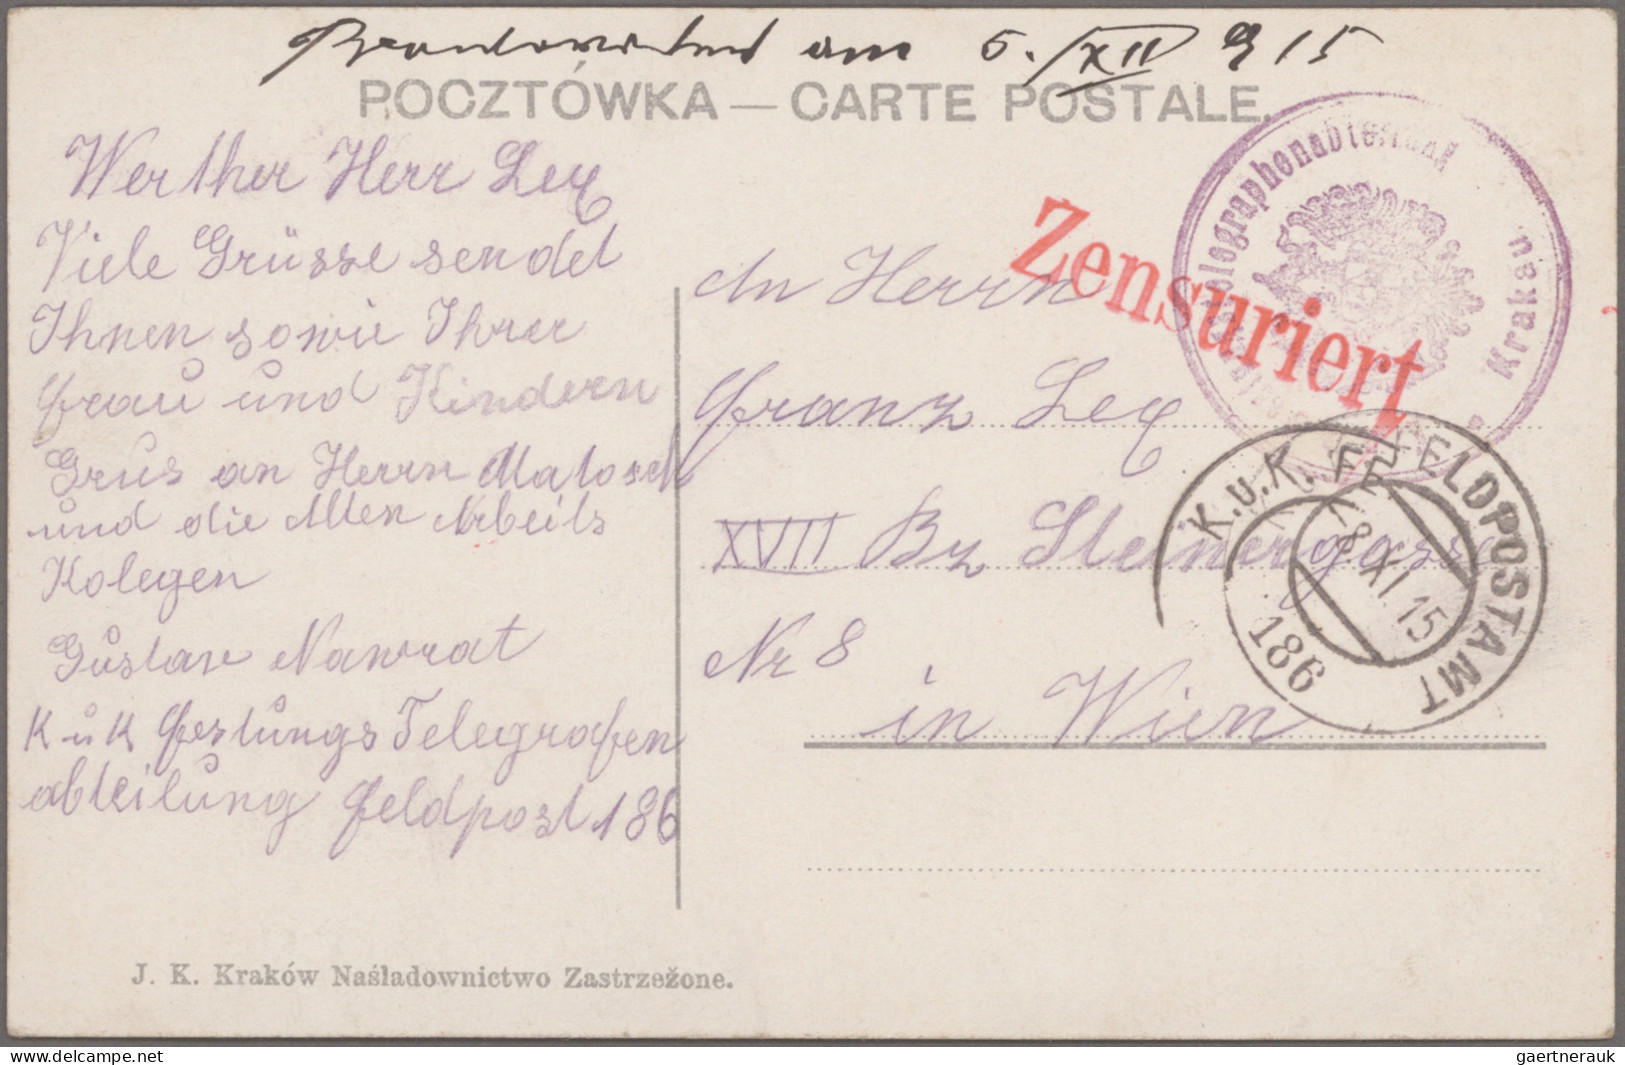 am 5./XII 915
POCZTÓWKA — CARTE POSTALE.
Werther Herr Ley
Viele Grüsse sendet
Ihnen sowie Ihrer
Frau und Kindern
Grus an Herrn Matosch
und die Alten Arbeits
Kolegen
Gustav Nawrat
K u K Festungs Telegrafen
abteilung Feldpost 186
An Herrn
Franz Ley
XVII Bz Steinergasse
Nr 8
in Wien
Zensuriert
Telegraphenabteilung
Krakau
K.u.K. FELDPOSTAMT
XI. 15
186
J. K. Kraków Naśladownictwo Zastrzeżone.
www.delcampe.net
gaertnerauk